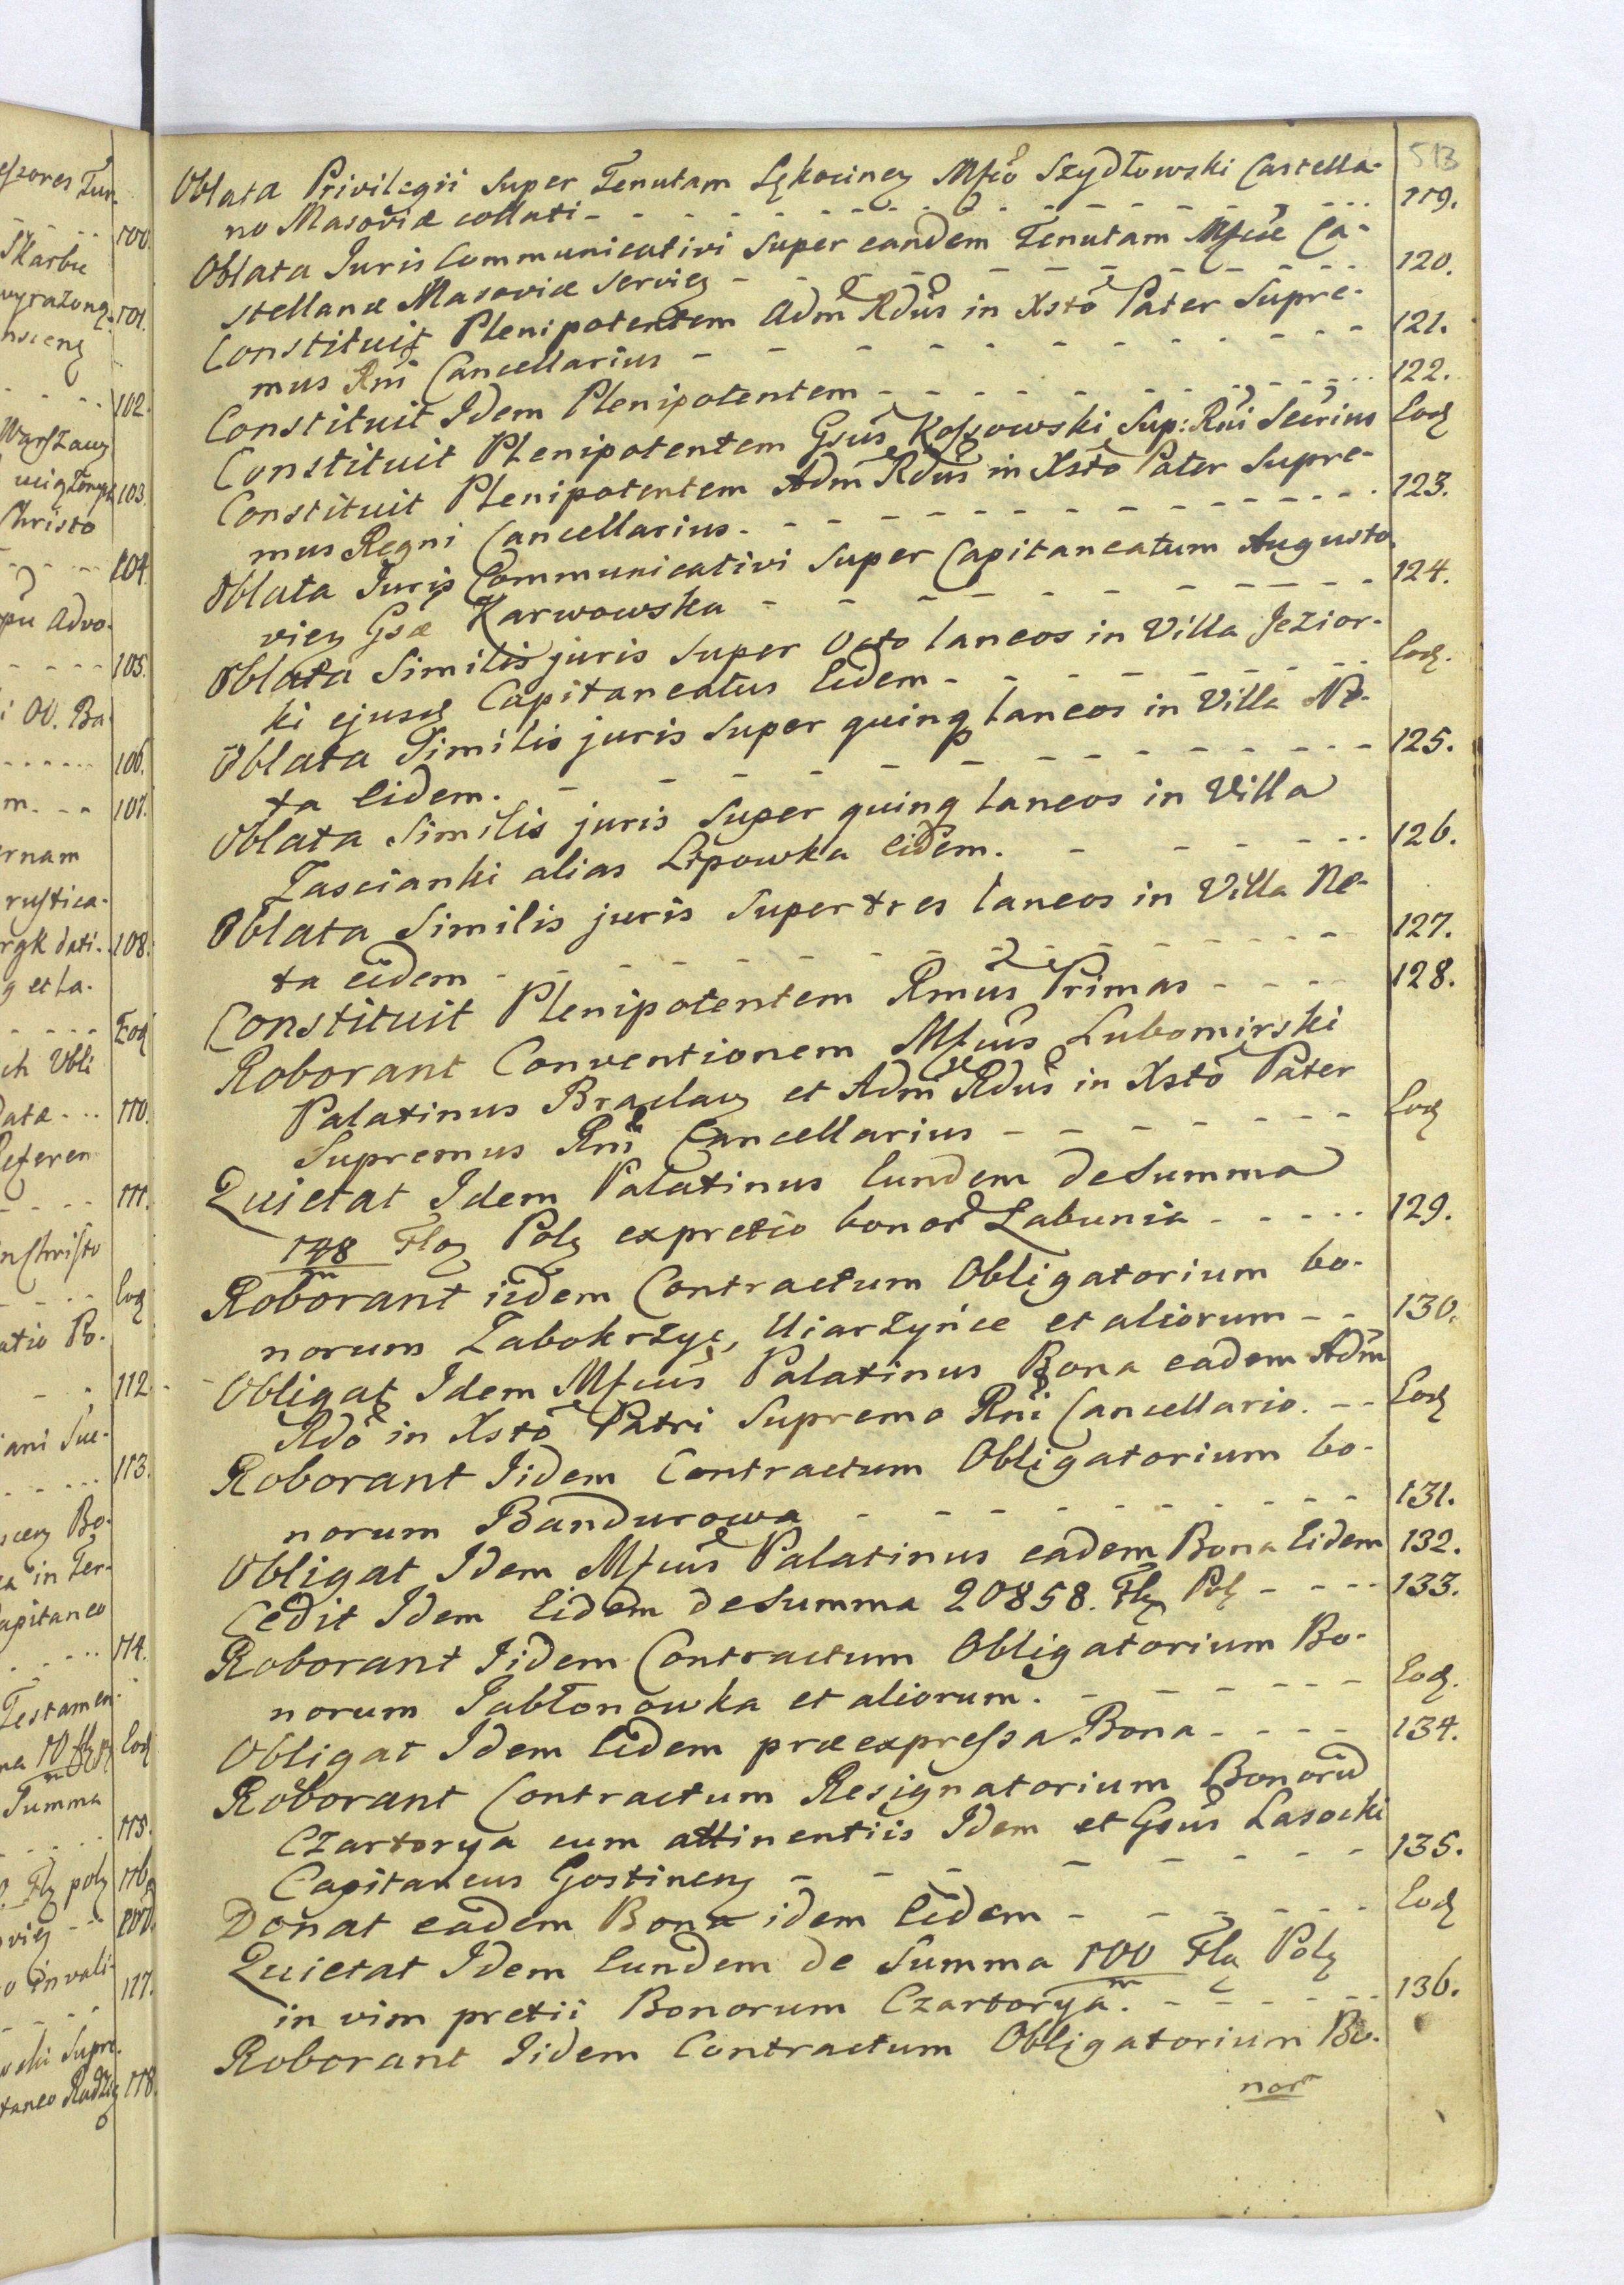 513
Oblata Privilegii Super Tenutam Lękocinen Mfco Szydłowski Castella-
no Masoviæ collati - - - 119.
Oblata Juris Communicativi Super eandem Tenutam Mfcæ Ca-
stellanæ Masoviæ Servien - - - 120.
Constituit Plenipotentem Adm Rdus in Xsto Pater Supre-
mus Rni Cancellarius - - - 121.
Constituit Idem Plenipotentem - - - 122.
Constituit Plenipotentem Gsus Kossowski Sup: Rni Secrius Eod
Constituit Plenipotentem Adm Rdus in Xsto Pater Supre-
mus Regni Cancellarius - - - 123.
Oblata Juris Communicativi Super Capitaneatum Augusto
vien Gsæ Karwowska - - - 124.
Oblata Similis juris Super Octo laneos in Villa Jezior-
ki ejusd Capitaneatus Eidem - - - Eod.
Oblata Similis juris Super quinq laneos in Villa Ne-
ta Eidem. - - - 125.
Oblata Similis juris Super quinq laneos in Villa
Zascianki alias Lipowka Eidem. - - - 126.
Oblata Similis juris Super tres laneos in Villa Ne-
ta eidem - - - 127.
Constituit Plenipotentem Rmus Primas - - - 128.
Roborant Conventionem Mfcus Lubomirski
Palatinus Braclav et Adm Rdus in Xsto Pater
Supremus Rni Cancellarius - - - Eod
Quietat Idem Palatinus Eundem de Summa
148 m Flor Pol expretio bonor Labunia - - - 129.
Roborant iidem Contractum Obligatorium bo-
norum Zabokrzyc, Uiarzyńce et aliorum - - 130.
Obligat Idem Mfcus Palatinus Bona eadem Adm
Rdo in Xsto Patri Supremo Rni Cancellario. - - Eod
Roborant Iidem Contractum Obligatorium bo-
norum Bandurowa - - - 131.
Obligat Idem Mfcus Palatinus eadem Bona Eidem 132.
Cedit Idem Eidem de Summa 20858. Fl Pol - - - 133.
Roborant Iidem Contractum Obligatorium Bo-
norum Jabłonowka et aliorum. - - - Eod.
Obligat Idem Eidem præexpressa Bona - - - 134.
Roborant Contractum Resignatorium Bonoru
Czartorya cum attinentiis Idem et Gsus Lasocki
Capitaneus Gostinen - - - 135.
Donat eadem Bona idem Eidem - - - Eod
Quietat Idem Eundem de Summa 100 m Fl Pol
in vim pretii Bonorum Czartorya. - - - 136.
Roborant Iidem Contractum Obligatorium Bo-
nor